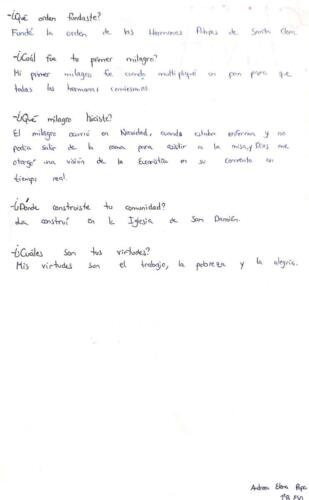 -¿Qué orden fundaste?
Fundé la orden de las Hermanas Pobres de Santa Clara.
-¿Cuál fue tu primer milagro?
Mi primer milagro fue cuando multipliqué un pan para que
todas las hermanas comiésemos.
-¿Qué milagro hiciste?
El milagro ocurrió en Navidad, cuando estaba enferma y no
podía salir de la cama para asistir a la misa, y Dios me
otorgó una visión de la Eucaristía en su convento en
tiempo real.
-¿Dónde construiste tu comunidad?
La construí en la Iglesia de San Damián.
-¿Cuáles son tus virtudes?
Mis virtudes son el trabajo, la pobreza y la alegría.
Andrea Elena Popa
1ºB